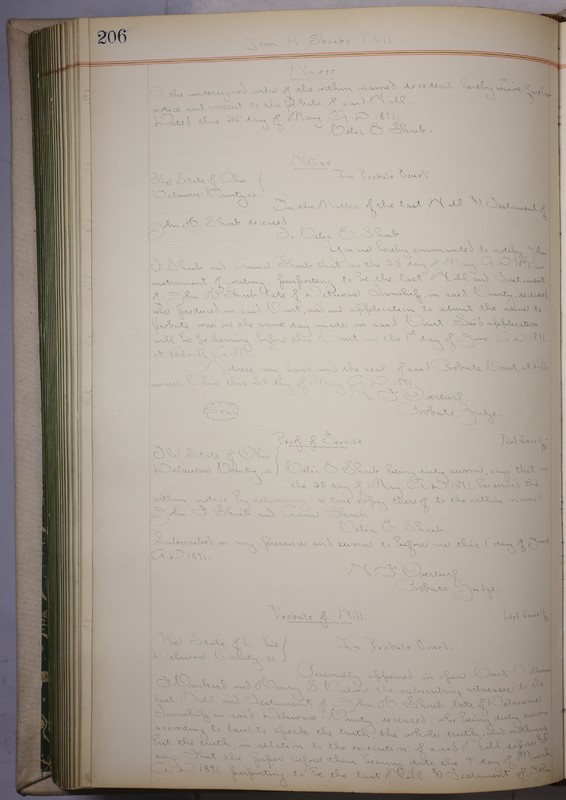 206
John H Shaub Will
Waiver
the undersigned, of the within named decedent hereby waive further
notice and consent to the Probate of said Will.
Dated this 28 day of May A.D. 1891.
Delia E Shaub.
Notice
The State of Ohio
Delaware County ss
In Probate Court
In the Matter of the Last Will & Testament of
John H. Shaub deceased
To Delia E Shaub
You are hereby commanded to notify John
F. Shaub and Shaub that on the 28 day of May A.D. 1891 an
instrument of writing purporting to be the Last Will and Testament
of John H Shaub late of Delaware Township, in said County, deceased
was produced in said Court, and an application to admit the same to
probate was on the same day made in said Court. Said application
will be for hearing before this Court on the 1st day of June A.D. 1891
at o'clock A.M.
Witness my hand and the seal of said Probate Court at Dela
ware, Ohio this 28 day of May A.D. 1891.
N. F. Overturf
Seal
Probate Judge
Proof of Service
The State of Ohio
Delaware County, ss
Delia E Shaub being duly sworn, says that on
the 28 day of May A.D. 1891, he served the
within notice by delivering a true copy thereof to the within named
John F Shaub and Shaub.
Delia E Shaub
Subscribed in my presence and sworn to before me this 1 day of June
A.D. 1891.
N. F. Overturf
Probate Judge
Probate of Will
The State of Ohio
Delaware County ss
In Probate Court.
Personally appeared in open Court
and Henry the subscribing witnesses to the
Last Will and Testament of John H. Shaub late of Delaware
Township in said Delaware County deceased, who being duly sworn
according to law, to speak the truth, the whole truth, and nothing
but the truth, in relation to the execution of said Will, depose &
say: That the paper before them bearing date the 9 day of March
A.D. 1891 purporting to be the last Will & Testament of John